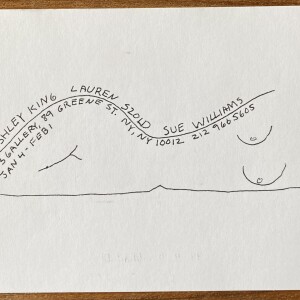 HLEY KING LAUREN SZOLD SUE WILLIAMS
GALLERY, 89 GREENE ST. NY, NY 10012 212 9605605
JAN 4 - FEB 1